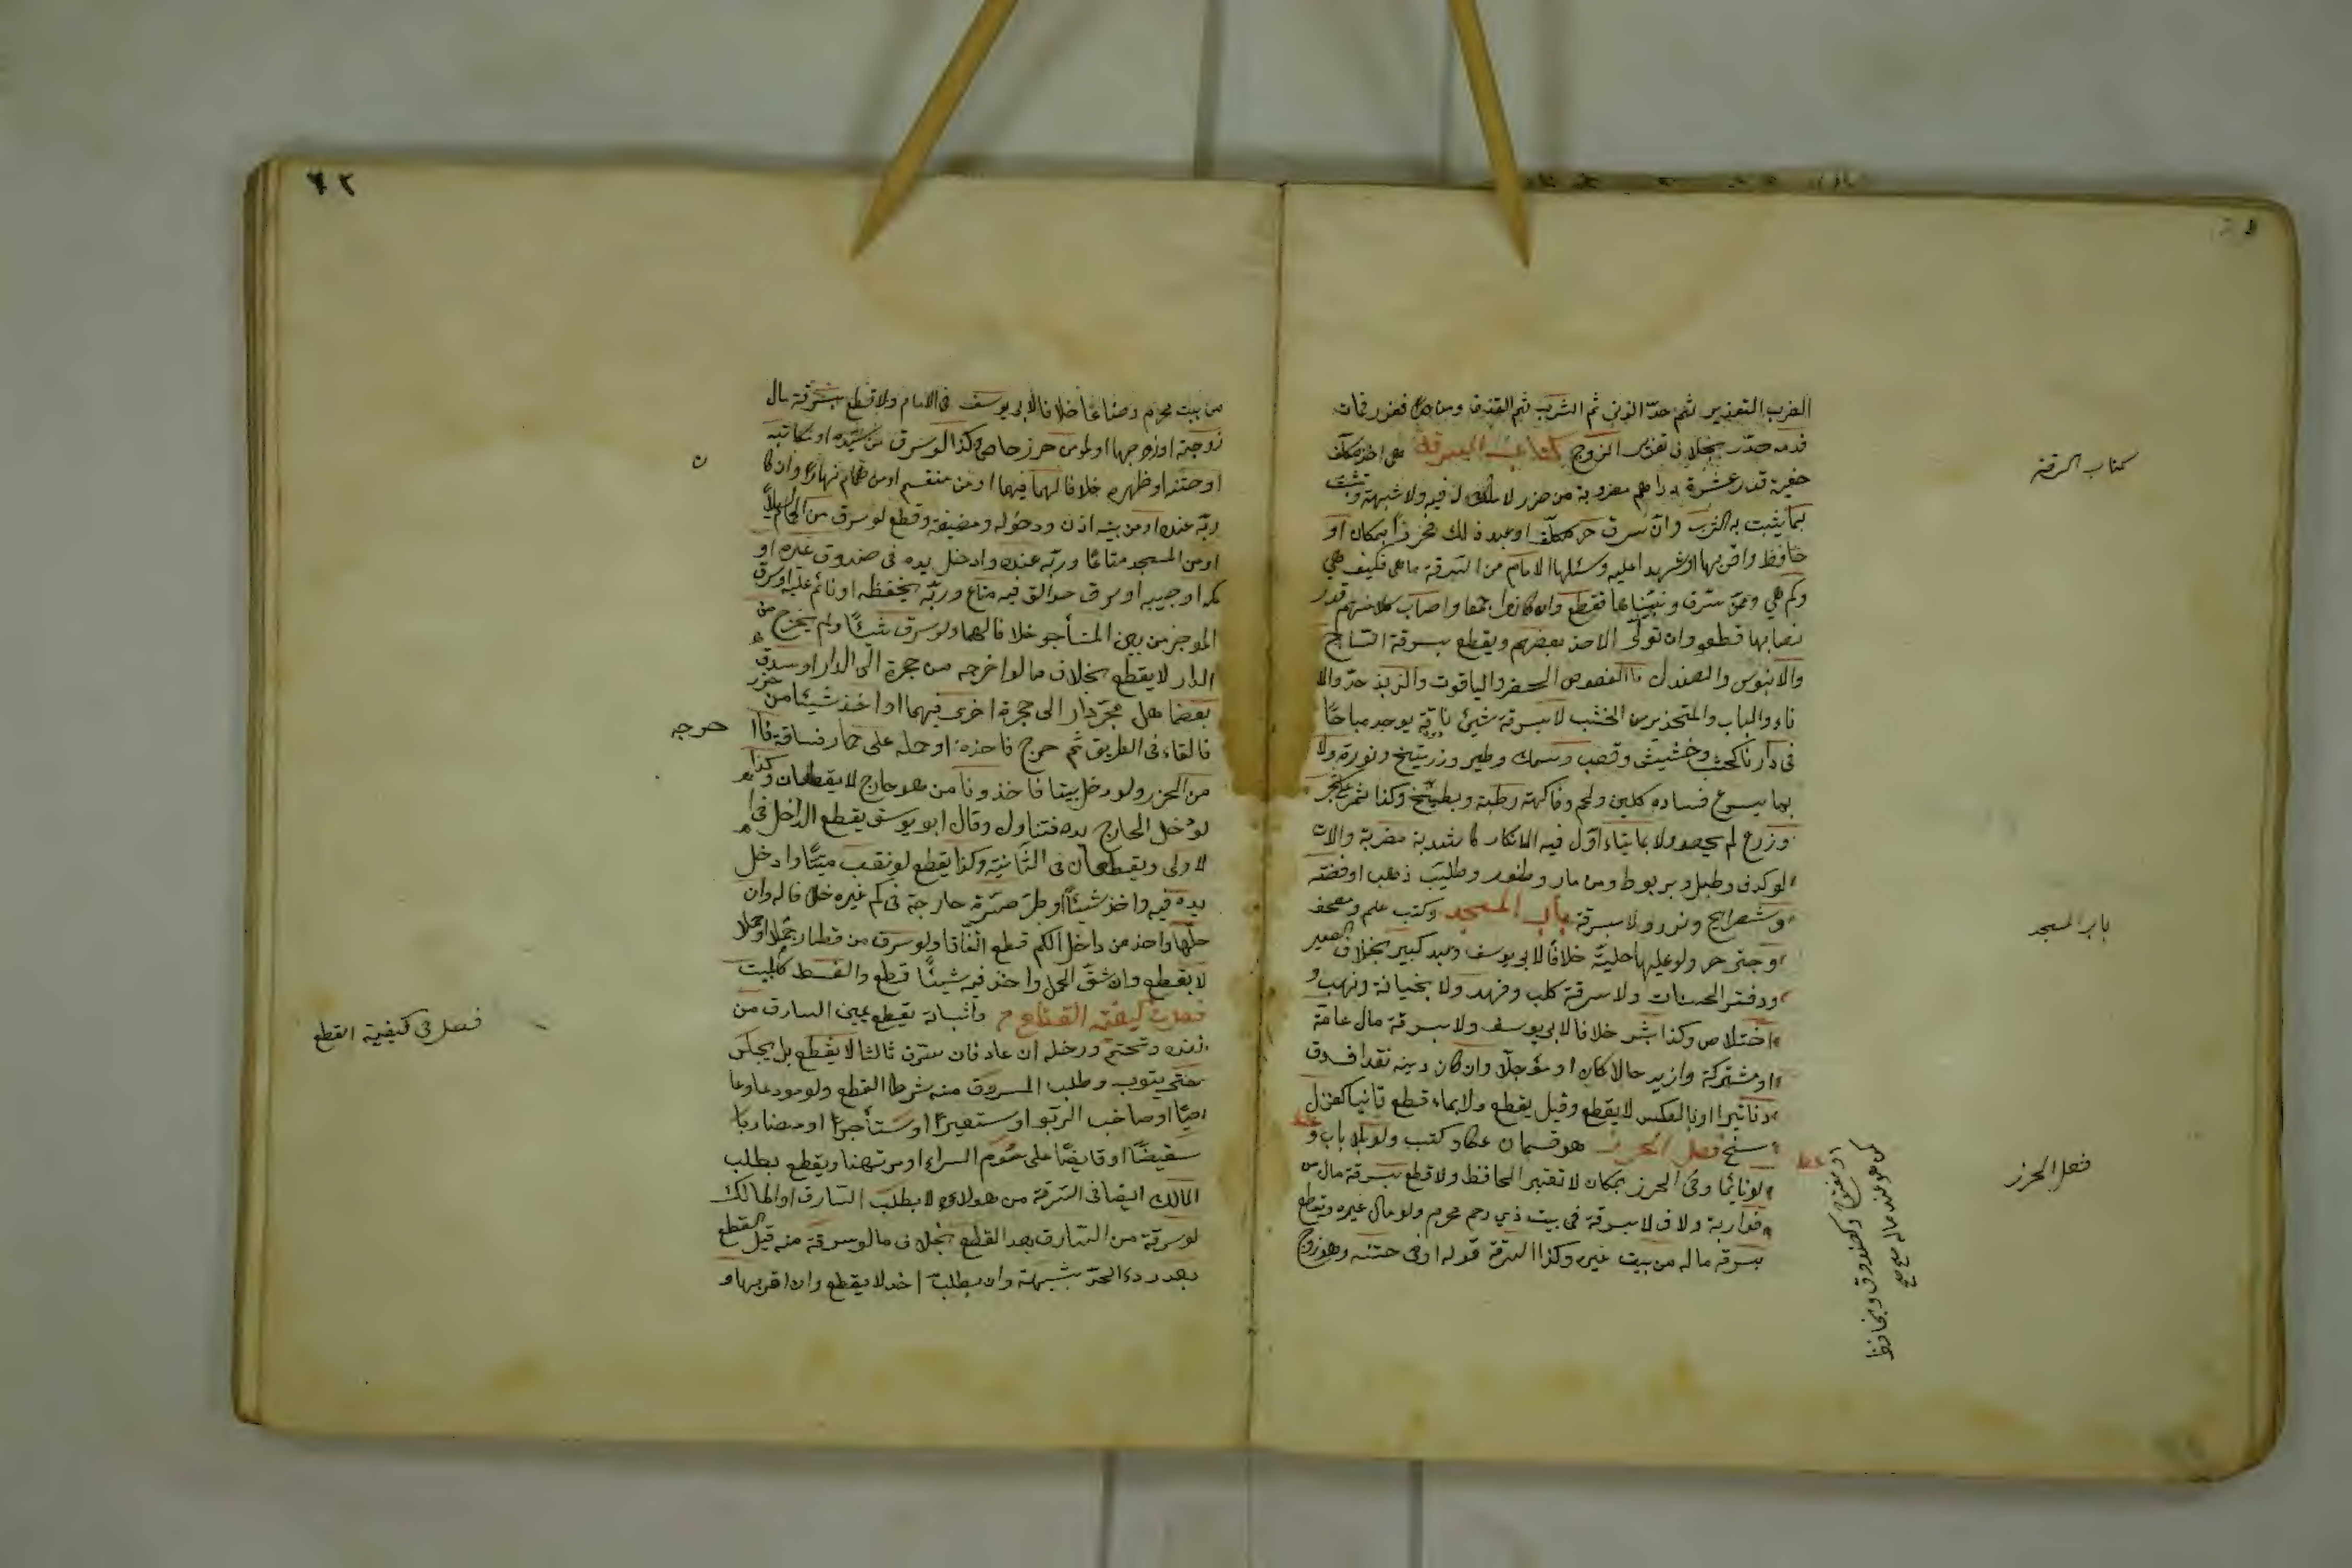 الضرب التعزير ثم حدّ الزنى ثم الشرب ثم القذف ومن حد او عزر فمات
فدمه هدر بخلاف تعزير الزوج كتاب السرقة هي اخذ مكلف
خفية قدر عشرة دراهم مضروبة من حرز لا ملك له فيه ولا شبهة وتثبت
بما يثبت به الشرب وان سرق حر مكلف او عبد ذلك محرزا بمكان او
حافظ واقر بها او شهدا عليه وسئلهما الامام من السرقة ما هي وكيف هي
وكم هي وممن سرق وبيناها فقطع وان كانوا جمعا واصاب كلا منهم قدر
نصابها قطعوا وان تولى الاخذ بعضهم ويقطع بسرقة الساج
والابنوس والصندل والفصوص الخضر والياقوت والزبرجد والا
ناء والباب والمتخذين من الخشب لا بسرقة شئ تافه يوجد مباحا
في دارنا كخشب وحشيش وقصب وسمك وطير وزرنيخ ونورة ولا
بما يسرع فساده كلبن ولحم وفاكهة رطبة وبطيخ وكذا ثمر على شجر
وزرع لم يحصد ولا بما يتاول فيه الانكار كاشربة مطربة والات
لهو كدف وطبل وبربط ومزمار وطنبور وصليب ذهب او فضة
وشطرنج ونرد ولا سرقة باب المسجد وكتب علم ومصحف
وصبي حر ولو عليهما حلية خلافا لابي يوسف وعبد كبير بخلاف الصغير
ودفتر الحساب ولا سرقة كلب وفهد ولا بخيانة ونهب و
اختلاس وكذا نبش خلافا لابي يوسف ولا بسرقة مال عامة
او مشتركة وازيد حالا كان او مؤجلا وان كان دينه نقدا فسرق
دنانيرا او بالعكس لا يقطع وقيل يقطع ولا بما قطع ثانيا كغزل
نسج فصل الحرز هو قسمان مكان كتب ولو بلا باب و
لو نائما وفي الحرز بمكان لا تعتبر الحافظ ولا قطع بسرقة مال من
قرابة ولاد لا بسرقة في بيت ذي رحم محرم ولو مال غيره ويقطع
بسرقة ماله من بيت غيره وكذا السرقة قوله او في ختنه وهو زوج
كتاب السرقة
باب المسجد
فصل الحرز
او مفتوح وكصندوق وبحافظ
كمن هو عند ماله صح صح
٦٢
من بيت محرم رضاعا خلافا لابي يوسف في الامام ولا قطع بسرقة مال
زوجته او زوجها او لو من حرز خاص وكذا لو سرق من سيده او مكاتبه
او ختنه او ظهره خلافا لهما فيهما او من مغنم او من حمام نهارا وان كا
ربه عنده او من بيت اذن دخوله ومضيفه وقطع لو سرق من الحمام ليلا
او من المسجد متاعا وربه عنده وادخل يده في صندوق غيره او
كمه او جيبه او سرق جوالق فيه متاع وربه يحفظه او نائم عليه او سرق
الموجر من بين المستأجر خلافا لهما ولو سرق شيئا ولم يخرج من
الدار لا يقطع بخلاف ما لو اخرجه من حجرة الى الدار او سرق
بعض اهل حجر دار الى حجرة اخرى فيها او اخذ شيئا من حرز
فالقاه في الطريق ثم خرج فاخذه او حمله على حمار فساقه فا
من الحرز ولو دخل بيتا فاخذ وناول من هو خارج لا يقطعان وكذا
لو ادخل الخارج يده فتناول وقال ابو يوسف يقطع الداخل في ا
لاولى ويقطعان في الثانية وكذا يقطع لو نقب بيتا وادخل
يده فيه واخذ شيئا او طر صرة خارجة في كم غيره خلافا له وان
حلها واخذ من داخل الكم قطع اتفاقا ولو سرق من قطار جملا او حملا
لا يقطع وان شق الحمل واخذ فيه شيئا قطع والفسطاط كالبيت
فصل في كيفية القطع واثباته يقطع يمين السارق من
زنده وتحسم ورجله ان عاد فان سرق ثالثا لا يقطع بل يحبس
حتى يتوب وطلب المسروق منه شرط القطع ولو مودعا وغا
صبا او صاحب الربو او مستعيرا او مستأجرا او مضاربا
مستبضعا او قابضا على سوم الشراء او مرتهنا ويقطع بطلب
المالك ايضا في السرقة من هولاء لا بطلب السارق او المالك
لو سرقة من السارق بعد القطع بخلاف ما لو سرقة منه قبل القطع
بعد درء الحد بشبهة وان بطلب اخذ لا يقطع وان اقر بها و
خرجه
ن
فصل في كيفية القطع